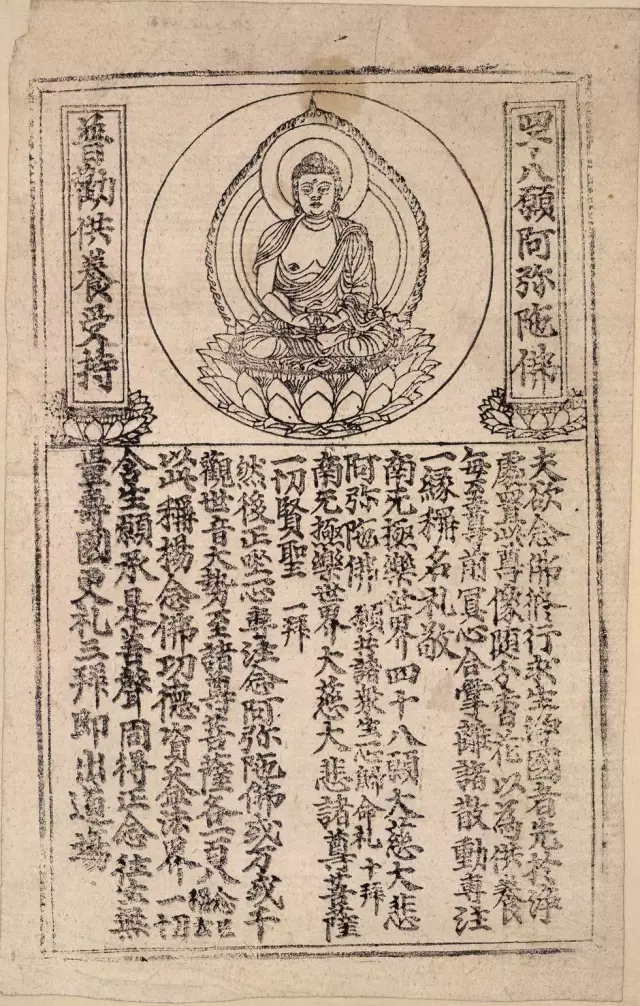 四十八願阿弥陁佛
普勸供養受持
夫欲念佛修行求生淨國者先於淨
處置此尊像隨分香花以為供養
每至尊前冥心合掌離諸散動專注
一緣稱名礼敬
南无極樂世界四十八願大慈大悲
阿弥陁佛 願共諸衆生 命礼十拜
南无極樂世界大慈大悲諸尊菩薩
一切賢聖 一拜
然後正坐一心專注念阿弥陁佛或万或千
觀世音大勢至諸尊菩薩各一百八
以此稱揚念佛功德資益法界一切
含生願承是善聲同得正念往生無
量尊國更礼三拜即出道場